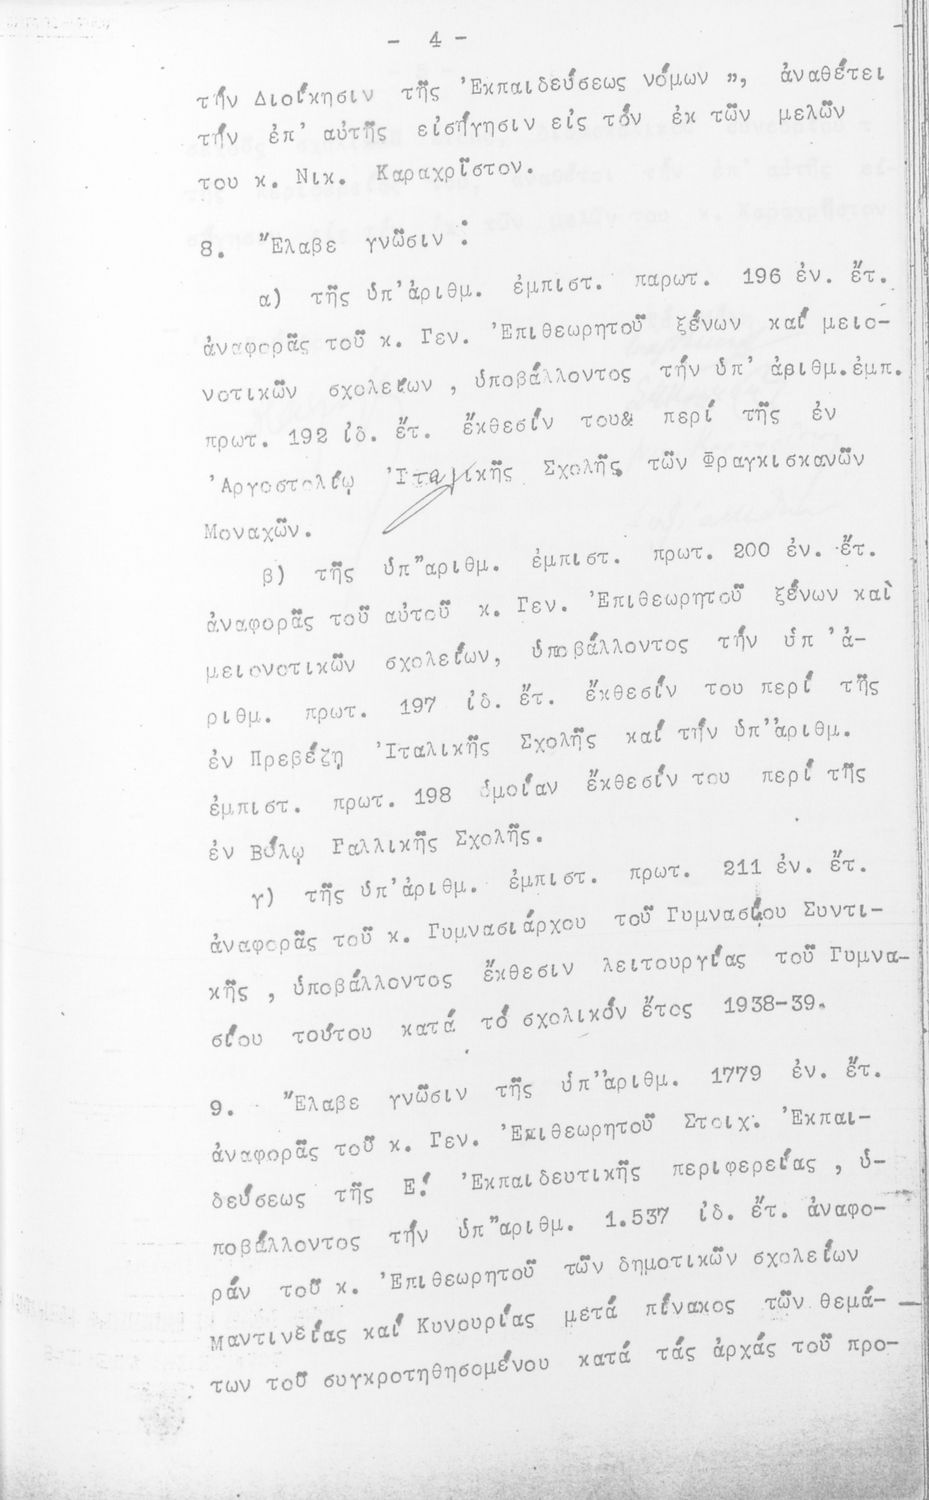 - 4 -
τήν Διοίκησιν τῆς Ἐκπαιδεύσεως νόμων ", ἀναθέτει
τήν ἐπ' αὐτῆς εἰσήγησιν εἰς τόν ἐκ τῶν μελῶν
του κ. Νικ. Καραχρῖστον.
8. Ἔλαβε γνῶσιν :
α) τῆς ὑπ'ἀριθμ. ἐμπιστ. παρωτ. 196 ἐν. ἔτ.
ἀναφορᾶς τοῦ κ. Γεν. Ἐπιθεωρητοῦ ξένων καί μειο-
νοτικῶν σχολείων , ὑποβάλλοντος τήν ὑπ' ἀριθμ.ἐμπ.
πρωτ. 192 ἰδ. ἔτ. ἔκθεσίν του& περί τῆς ἐν
Ἀργοστολίῳ Ἰταλικῆς Σχολῆς τῶν Φραγκισκανῶν
Μοναχῶν.
β) τῆς ὑπ"αριθμ. ἐμπιστ. πρωτ. 200 ἐν. ἔτ.
ἀναφορᾶς τοῦ αὐτοῦ κ. Γεν. Ἐπιθεωρητοῦ ξένων καὶ
μειονοτικῶν σχολείων, ὑποβάλλοντος τήν ὑπ 'ἀ-
ριθμ. πρωτ. 197 ἰδ. ἔτ. ἔκθεσίν του περί τῆς
ἐν Πρεβέζῃ Ἰταλικῆς Σχολῆς καί τήν ὑπ'ἀριθμ.
ἐμπιστ. πρωτ. 198 ὁμοίαν ἔκθεσίν του περί τῆς
ἐν Βόλῳ Γαλλικῆς Σχολῆς.
γ) τῆς ὑπ'ἀριθμ. ἐμπιστ. πρωτ. 211 ἐν. ἔτ.
ἀναφορᾶς τοῦ κ. Γυμνασιάρχου τοῦ Γυμνασίου Συντι-
κῆς , ὑποβάλλοντος ἔκθεσιν λειτουργίας τοῦ Γυμνα-
σίου τούτου κατά τό σχολικόν ἔτος 1938-39.
9. Ἔλαβε γνῶσιν τῆς ὑπ'ἀριθμ. 1779 ἐν. ἔτ.
ἀναφορᾶς τοῦ κ. Γεν. Ἐπιθεωρητοῦ Στοιχ. Ἐκπαι-
δεύσεως τῆς Ε! Ἐκπαιδευτικῆς περιφερείας , ὑ-
ποβάλλοντος τήν ὑπ"αριθμ. 1.537 ἰδ. ἔτ. ἀναφο-
ράν τοῦ κ. Ἐπιθεωρητοῦ τῶν δημοτικῶν σχολείων
Μαντινείας καί Κυνουρίας μετά πίνακος τῶν θεμά-
των τοῦ συγκροτηθησομένου κατά τάς ἀρχάς τοῦ προ-